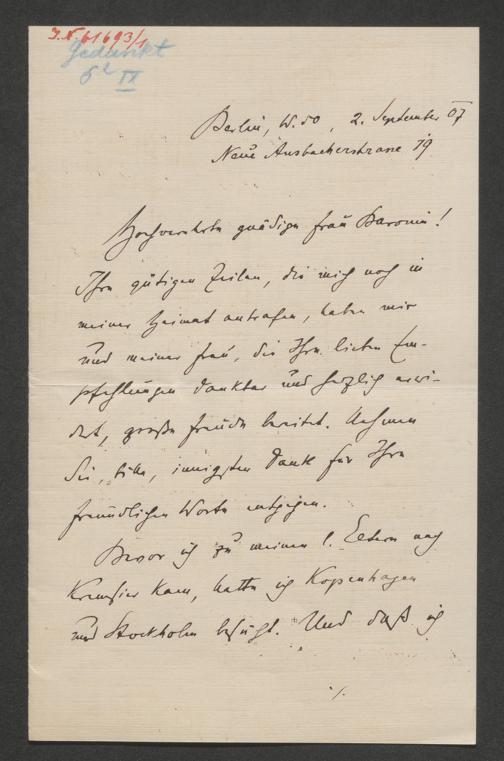 I.N. 61693/1
Gedankt
6t IX
Berlin, W. 50, 2. September 07
Neue Ansbacherstrasse 19
Hochverehrte gnädige Frau Baronin!
Ihre gütigen Zeilen, die mich noch in
meiner Heimat antrafen, haben mir
und meiner Frau, die Ihre lieben Em-
pfehlungen dankbar und herzlich erwi-
dert, große Freude bereitet. Nehmen
Sie, bitte, innigsten Dank für Ihre
freundlichen Worte entgegen.
Bevor ich zu meinen l. Eltern nach
Kremsier kam, hatte ich Kopenhagen
und Stockholm besucht. Und daß ich
./.